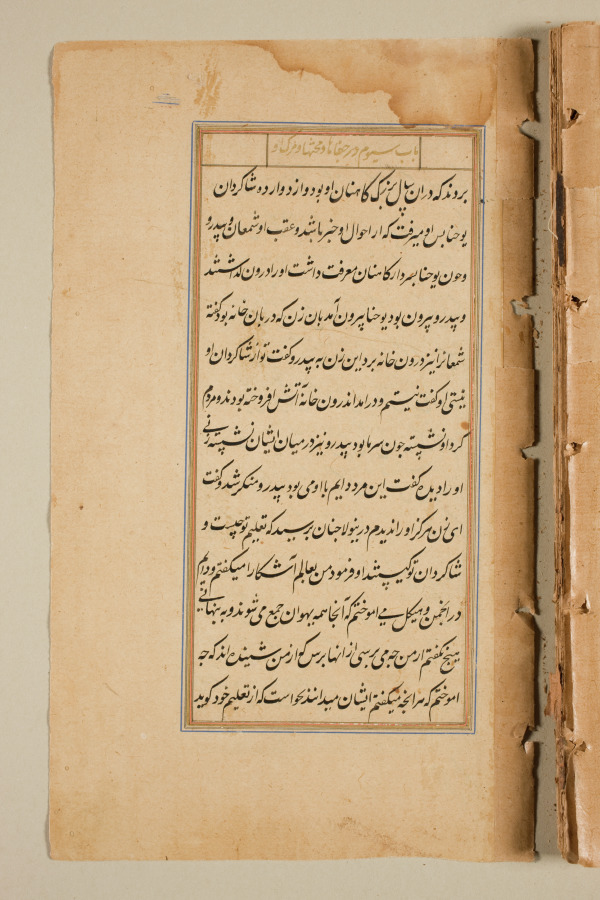 باب سیوم در جفاها و محنتها و مرگ او
بروند که دران سال بزرک کاهنان او بود و از دوازده شاکردان
یوحنا پس او میرفت که از احوال او خبر باشد و عقب او شمعان پیدرو
و چون یوحنا بسردار کاهنان معرفت داشت او را درون کذاشتند
و پیدرو بیرون بود یوحنا بیرون آمد بان زن که دربان خانه بود کفته
شمعانرا نیز درون خانه برد این زن به پیدرو کفت تو از شاکردان او
نیستی او کفت نیستم و در امد اندرون خانه آتش افروخته بودند و مردم
کرد او نشسته چون سرما بود پیدرو نیز درمیان ایشان نشسته زنی
او را دیده کفت این مرد دایم با او می بود پیدرو منکر شد و کفت
ای زن هرکز او را ندیدم درینولا حنان پرسید که تعلیم تو چیست و
شاکردان تو کیستند او فرمود من بعالم آشکارا میکفتم و دایم
در انجمن و هیکل می اموختم که آنجا همه یهوان جمع می شوند و به پنهانی
هیچ نکفتم از من چه می پرسی از انها پرس که از من شنیده اند که چه
اموختم که هر انچه میکفتم ایشان میدانند بخواست که از تعلیم خود کوید